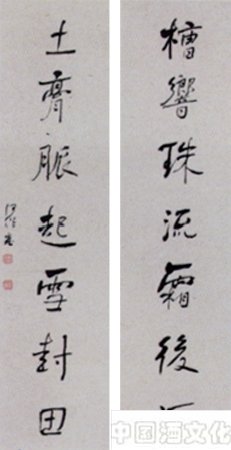 槽響珠流霜後
土膏脈起雪封田
中国酒文化